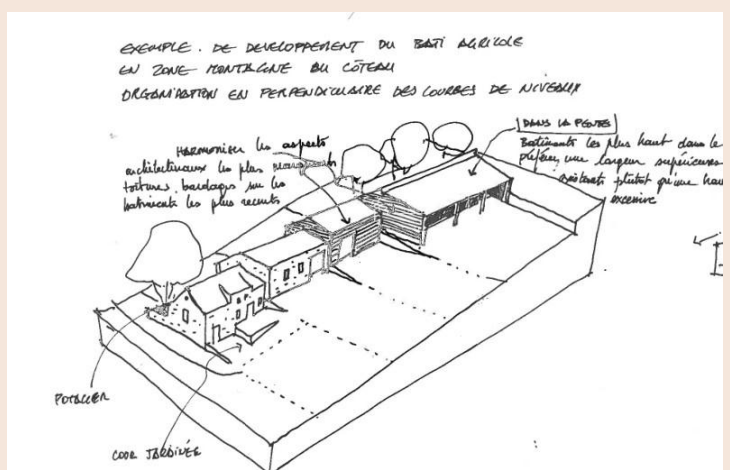 EXEMPLE. DE DEVELOPPEMENT DU BATI AGRICOLE
EN ZONE MONTAGNE OU CÔTEAU
ORGANISATION EN PERPENDICULAIRE DES COURBES DE NIVEAUX
HARMONISER les aspects
architecturaux les plus
toitures. bardages sur les
batiments les plus recents
DANS LA PENTE
Batiments les plus haut dans le
préférer une largeur supérieure
plutot qu'une hau
excessive
POTAGER
COUR JARDINÉE